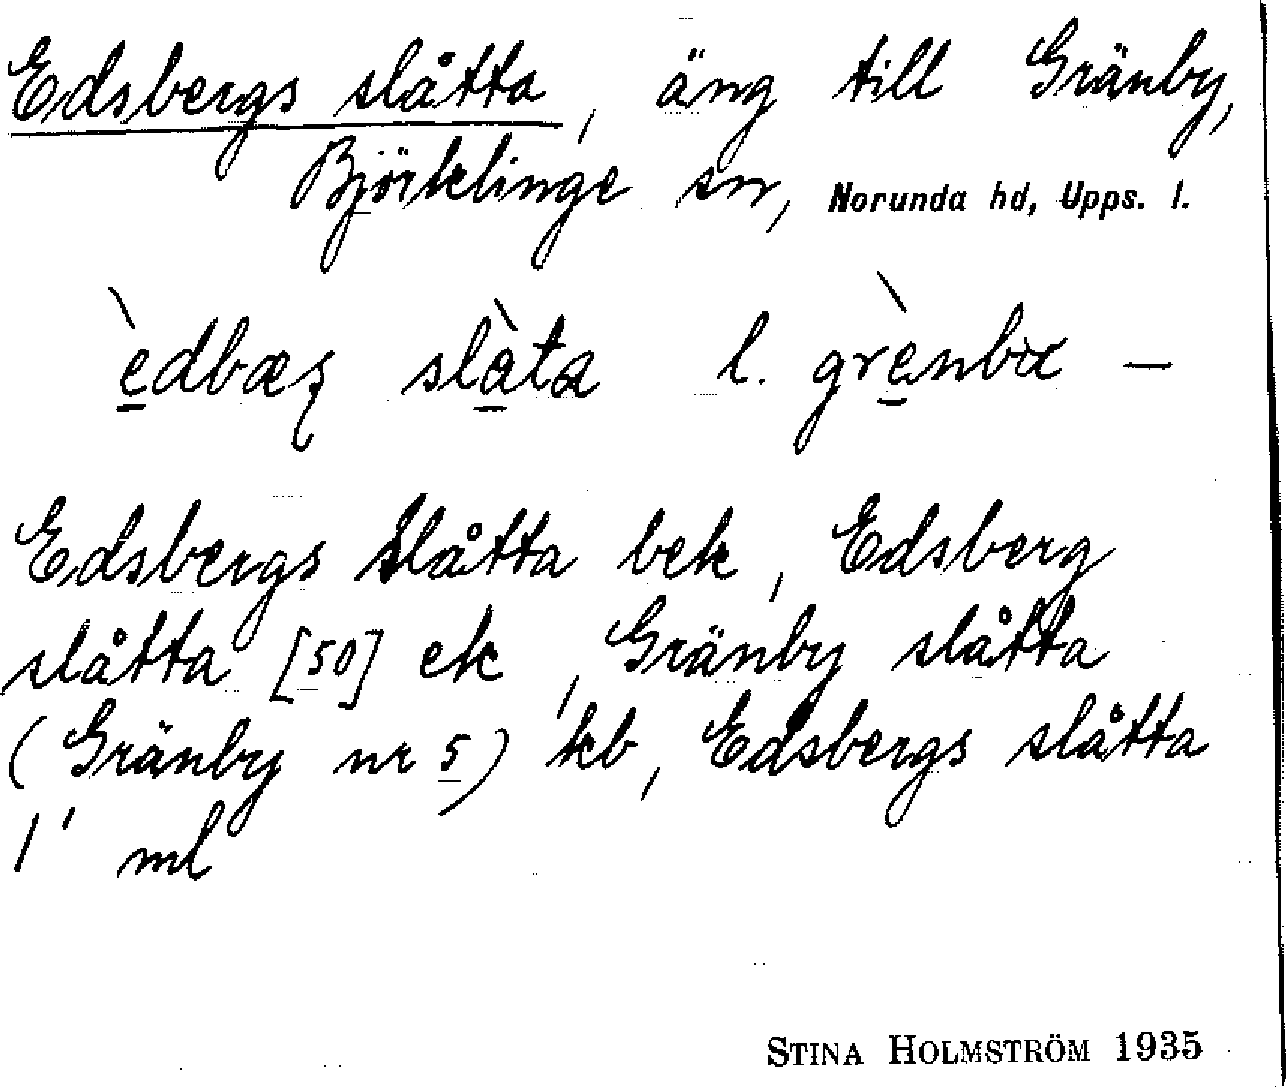 Edsbergs slåtta, äng till Gränby,
Björklinge sn, Norunda hd, Upps. l.
èdbæʂ slàta l. grènbɪ —
Edsbergs Slåtta bek, Edsberg
slåtta [50] ek, Gränby slåtta
(Gränby nr 5) kb, Edsbergs slåtta
1' ml
STINA HOLMSTRÖM 1935